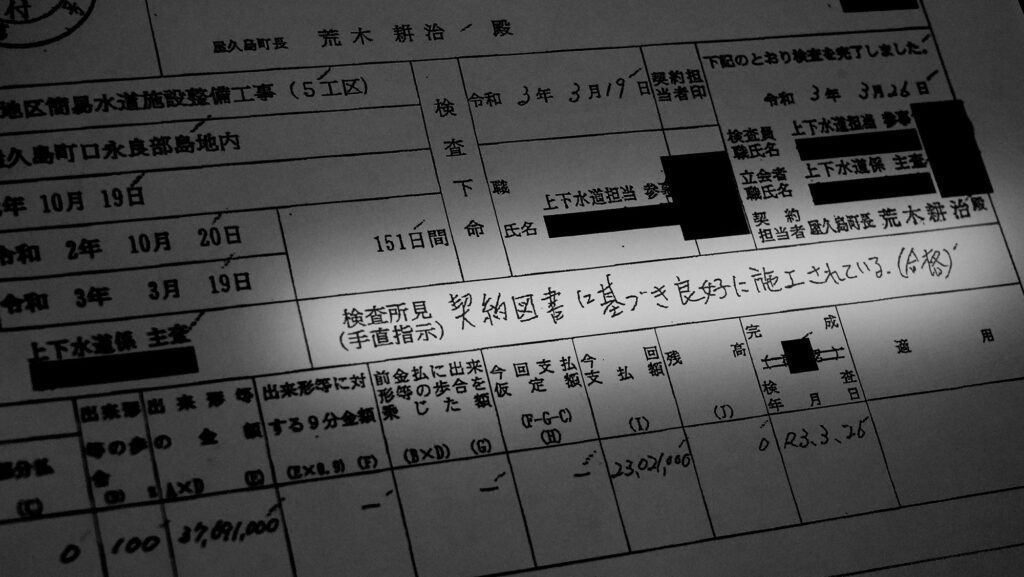 付
屋久島町長 荒木耕治 殿
地区簡易水道施設整備工事(5工区)
屋久島町口永良部島地内
年 10月 19日
令和 2年 10月 20日
令和 3年 3月 19日
151日間
上下水道係 主査
検査下命
令和 3年 3月19日
契約担当者印
職氏名
上下水道担当 参事
下記のとおり検査を完了しました。
令和 3年 3月26日
検査員職氏名
上下水道担当 参事
立会者職氏名
上下水道係 主査
契約担当者
屋久島町長 荒木耕治殿
検査所見(手直指示)
契約図書に基づき良好に施工されている。(合格)
部分払 (C)
出来形等の歩合 (D)
出来形等の金額 A×D (E)
出来形等に対する9分金額 (E×0.9) (F)
前金払に出来形等の歩合を乗じた額 (B×D) (G)
今回支払仮定額 (F-G-C) (H)
今回支払額 (I)
残高 (J)
完成
検査年月日
適用
0
100
37,691,000
ー
ー
ー
23,021,000
0
R3.3.26